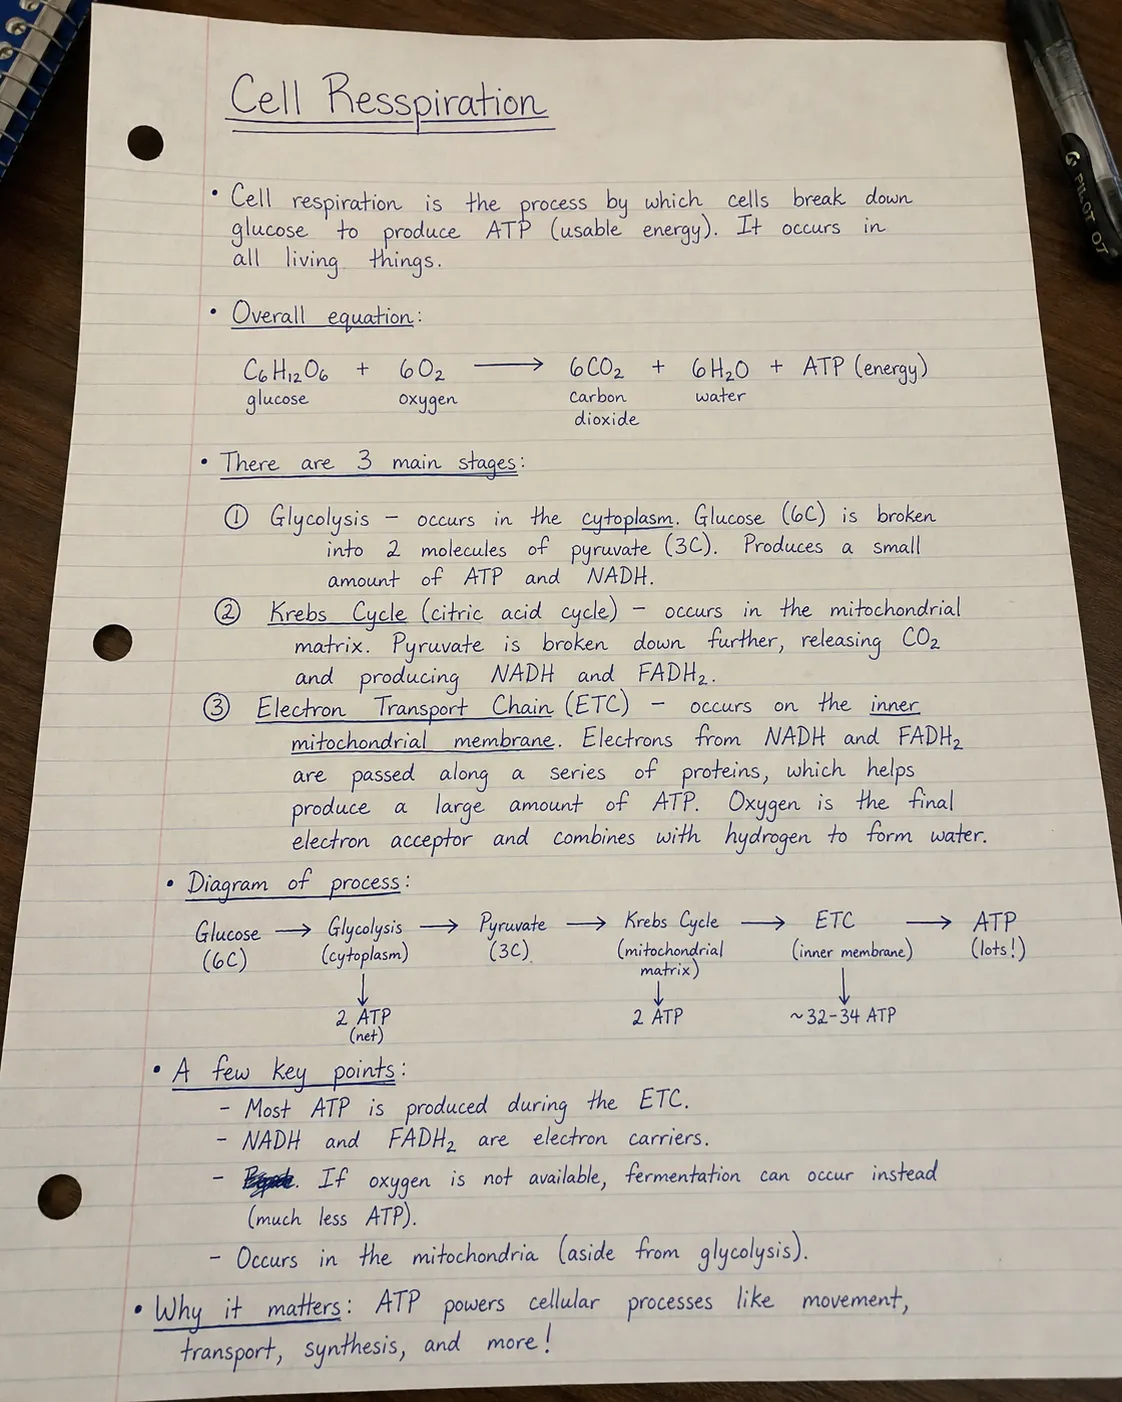 Cell Resspiration
• Cell respiration is the process by which cells break down
glucose to produce ATP (usable energy). It occurs in
all living things.
• Overall equation:
C₆H₁₂O₆ + 6O₂ ⟶ 6CO₂ + 6H₂O + ATP (energy)
glucose oxygen carbon water
dioxide
• There are 3 main stages:
① Glycolysis – occurs in the cytoplasm. Glucose (6C) is broken
into 2 molecules of pyruvate (3C). Produces a small
amount of ATP and NADH.
② Krebs Cycle (citric acid cycle) – occurs in the mitochondrial
matrix. Pyruvate is broken down further, releasing CO₂
and producing NADH and FADH₂.
③ Electron Transport Chain (ETC) – occurs on the inner
mitochondrial membrane. Electrons from NADH and FADH₂
are passed along a series of proteins, which helps
produce a large amount of ATP. Oxygen is the final
electron acceptor and combines with hydrogen to form water.
• Diagram of process:
Glucose → Glycolysis → Pyruvate → Krebs Cycle → ETC → ATP
(6C) (cytoplasm) (3C) (mitochondrial (inner membrane) (lots!)
matrix)
↓ ↓ ↓
2 ATP 2 ATP ~32-34 ATP
(net)
• A few key points:
– Most ATP is produced during the ETC.
– NADH and FADH₂ are electron carriers.
– If oxygen is not available, fermentation can occur instead
(much less ATP).
– Occurs in the mitochondria (aside from glycolysis).
• Why it matters: ATP powers cellular processes like movement,
transport, synthesis, and more!
PILOT